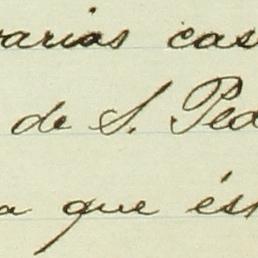 varias cas
de S. Ped
a que éss